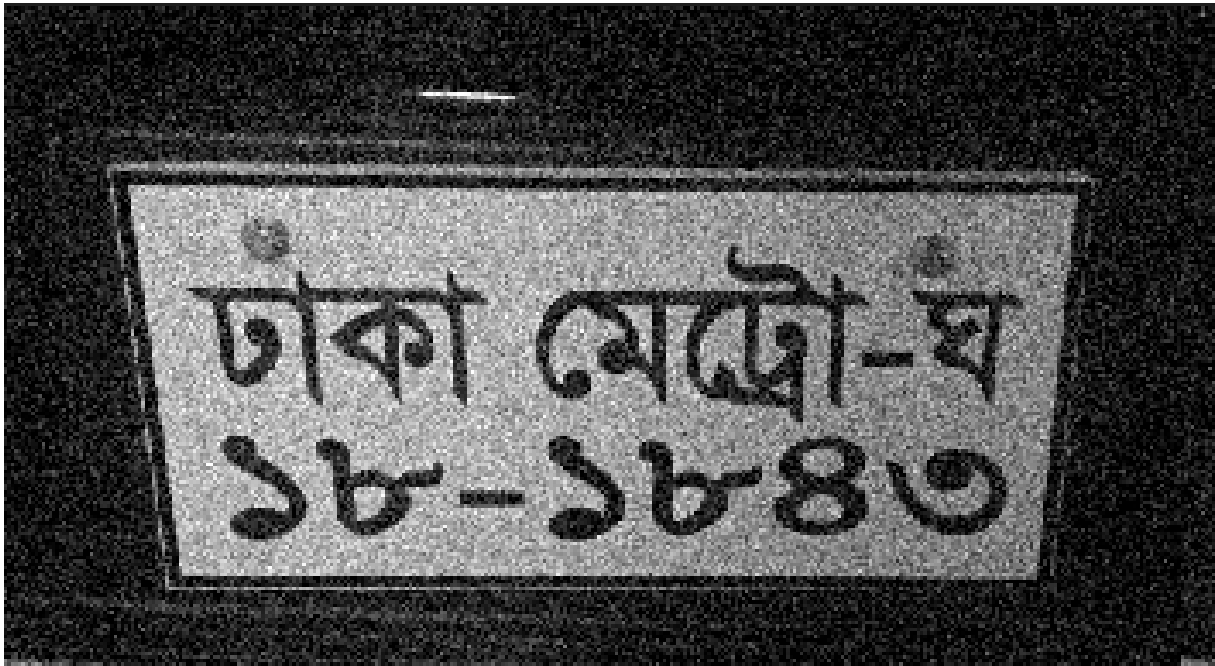 ঢাকা মেট্রো-ঘ
১৮-১৮৪৩